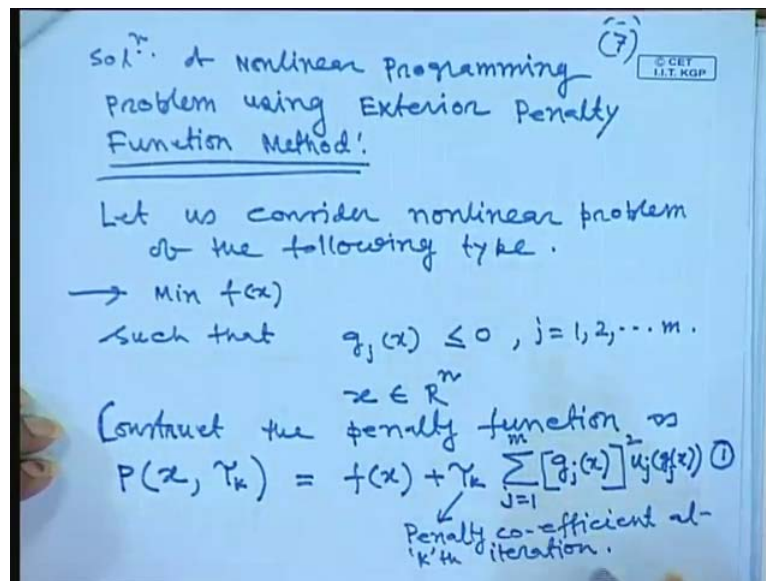 (7)
© CET
I.I.T. KGP
Solⁿ. of Nonlinear Programming
Problem using Exterior Penalty
Function Method:
Let us consider nonlinear problem
of the following type.
→ Min f(x)
such that g_j(x) ≤ 0, j = 1, 2, ... m.
x ∈ Rⁿ
Construct the penalty function as
P(x, r_k) = f(x) + r_k ∑_{j=1}^{m} [g_j(x)]² u_j(g_j(x)) ①
Penalty co-efficient at
'k'th iteration.